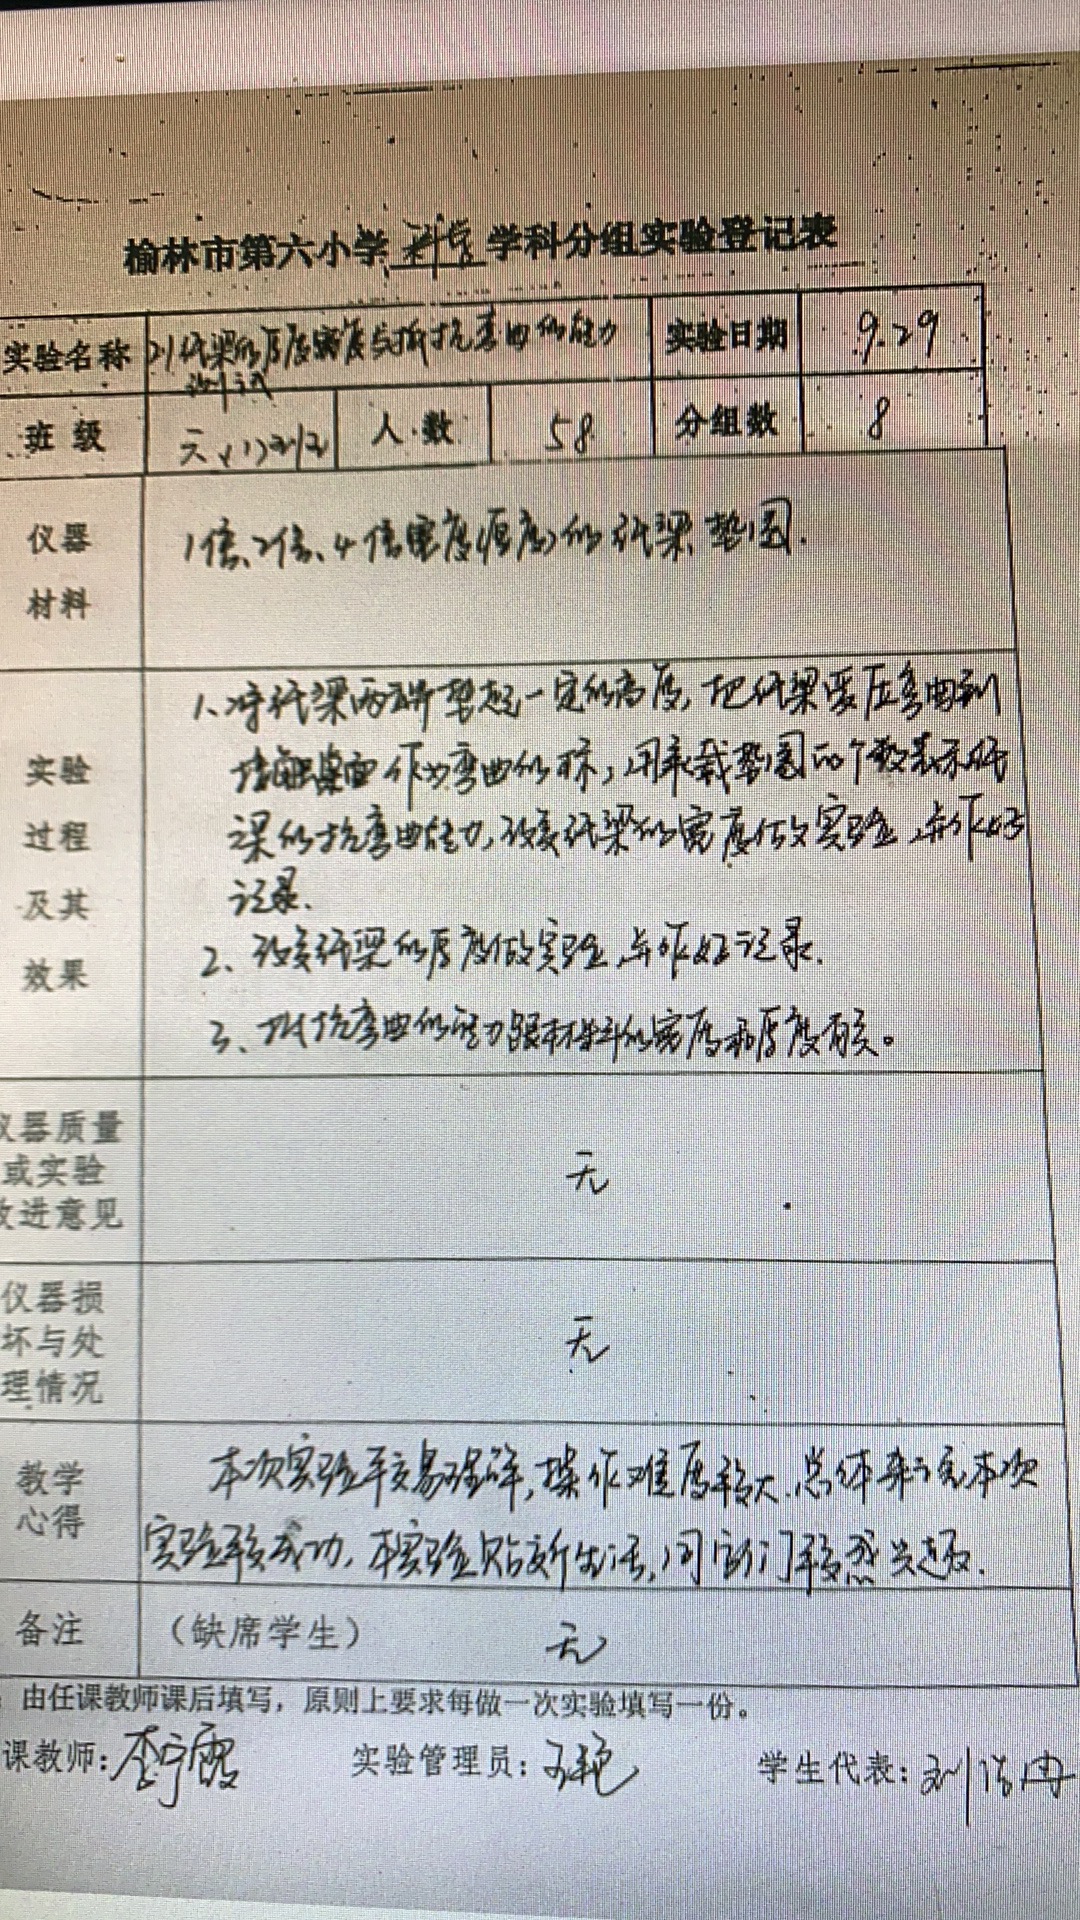 榆林市第六小学 科学 学科分组实验登记表
实验名称 21纸梁的厚度宽度与抵抗弯曲的能力 实验日期 9.29
测试
班级 人数 58 分组数 8
仪器 1倍、2倍、4倍宽度(厚度)的纸梁 垫圈.
材料
1、将纸梁两端垫起一定的高度,把纸梁受压弯曲到
实验 接触桌面作为弯曲的标,用承载垫圈的个数表示纸
过程 梁的抗弯曲能力,改变纸梁的宽度做实验,并作好
及其 记录.
效果 2、改变纸梁的厚度做实验,并作好记录.
3、抗弯曲的能力跟材料的宽度和厚度有关。
仪器质量
或实验 无
改进意见
仪器损
坏与处 无
理情况
教学 本次实验较易理解,操作难度较大.总体来说本次
心得 实验较成功.本实验贴近生活,同学们较感兴趣.
备注 (缺席学生) 无
由任课教师课后填写,原则上要求每做一次实验填写一份。
课教师:李宁霞 实验管理员:王艳 学生代表:刘